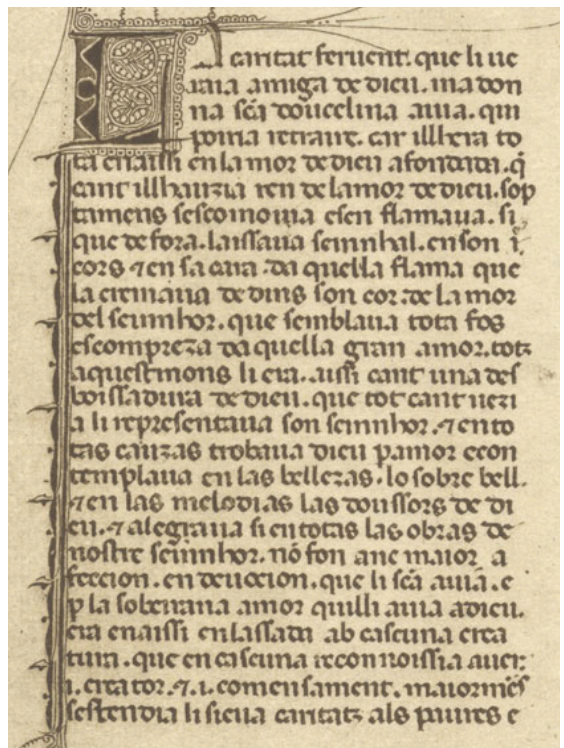 La caritat feruent. que li ue
raia amiga de dieu. madon
na sc̃a doucelina auia. qui
poiria retraire. car illh era to
ta enaissi en lamor de dieu afondada. q̃
cant illh auzia ren de lamor de dieu. sop
tamens sescomouia e sen flamaua. si
que de fora. laissaua seinnhal. en son
cors ⁊ en sa cara. da quella flama que
la cremaua dedins son cor. de lamor
del seinnhor. que semblaua tota fos
escompreza da quella gran amor. totz
aquest mons li era. aissi cant una des
boissadura de dieu. que tot cant uezi
a li representaua son seinnhor. ⁊ en to
tas cauzas trobaua dieu p amor e con
templaua en las bellezas. lo sobre bell.
⁊ en las melodias las doussors de di
eu. ⁊ alegraua si en totas las obras de
nostre seinnhor. nõ fon anc maior a
feccion. en deuocion. que li sc̃a auia. e
p la sobeirana amor quilli auia a dieu.
era enaissi enlassada ab cascuna crea
tura. que en cascuna reconnoissia auer
.i. creator. ⁊ .i. comensament. maiormẽs
sestendia li sieua caritatz als paures e